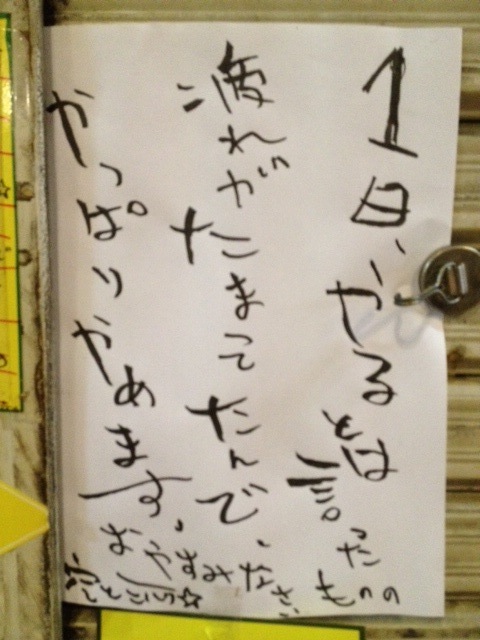 1日、やるとは言ったものの
疲れがたまってたんで、
やっぱりやめます、
おやすみなさい